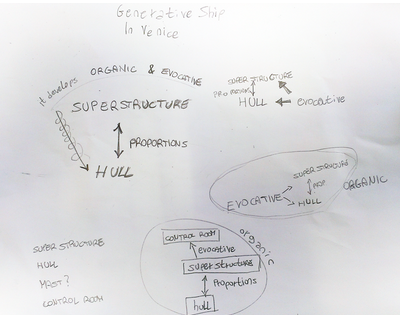 Generative Ship
In Venice
it develops
ORGANIC & EVOCATIVE
SUPERSTRUCTURE
PROPORTIONS
HULL
SUPERSTRUCTURE
HULL
evocative
SUPERSTRUCTURE
PROP.
EVOCATIVE
HULL
ORGANIC
organic
CONTROL ROOM
evocative
SUPERSTRUCTURE
Proportions
hull
SUPERSTRUCTURE
HULL
MAST?
CONTROL ROOM